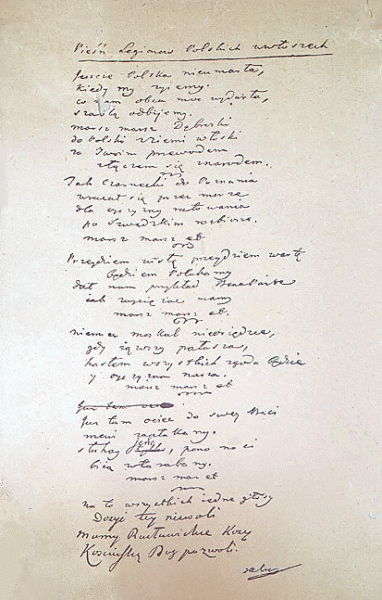 Pieśń Legionów Polskich we włoszech
Jeszcze Polska nie umarła,
kiedy my żyiemy.
co nam obca moc wydarła,
szablą odbijemy.
marsz marsz Dąbrski
do Polski z ziemi włoski
za Twoim przewodem
złączem się z narodem.
Jak Czarnecki do Poznania
wracał się przez morze
dla oyczyzny ratowania
po Szwedzkim rozbiorze.
marsz marsz etc
Przeydziem wisłę przeydziem wartę
Będziem Polakamy
dał nam przykład Bonaparte
jak zwyciężać mamy
marsz marsz etc.
niemiec moskal nie osiędzie,
gdy iąwszy pałasza,
hasłem wszystkich zgoda będzie
y oyczyzna nasza.
marsz marsz etc
Już tam ociec
Już tam ociec do swey Basi
mówi zapłakany.
słuchay ieno, pono nasi
biią w tarabany.
marsz marsz etc
na to wszystkich iedne głosy
Dosyć tey niewoli
Mamy Racławickie Kosy
Kościuszkę Bóg pozwoli.